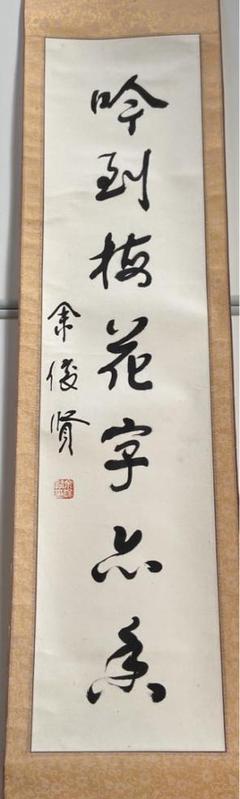 吟到梅花字亦香
余俊賢